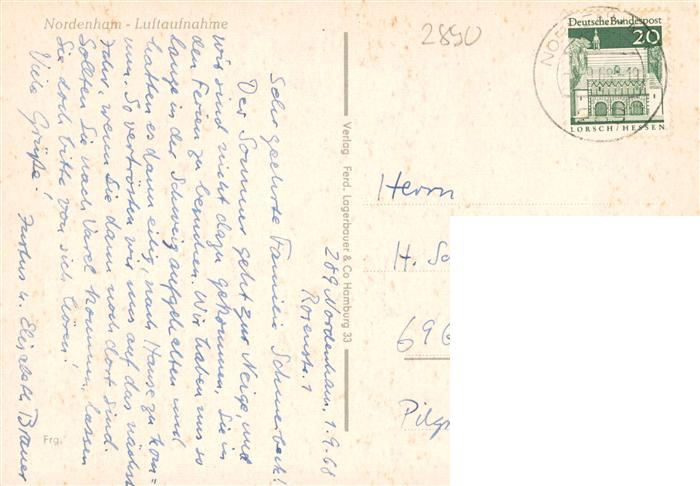 Nordenham - Luftaufnahme
2890
Deutsche Bundespost
20
LORSCH/HESSEN
289 Nordenham, 1.9.68
Rosenstr. 1
Sehr geehrte Familie Schneebeck!
Der Sommer geht zur Neige, und
wir sind nicht dazu gekommen, Sie in
den Ferien zu besuchen. Wir haben uns so
lange in der Schweiz aufgehalten und
hatten es dann eilig, nach Hause zu kom=
men. So vertrösten wir uns auf das nächste
Jahr, wenn Sie dann noch dort sind.
Sollten Sie nach Varel kommen, lassen
Sie doch bitte von sich hören!
Viele Grüße!
Justus u. Elisabeth Brauer
Verlag Ferd. Lagerbauer & Co Hamburg 33
Herrn
H. Sc
696
Pilg
Frg.